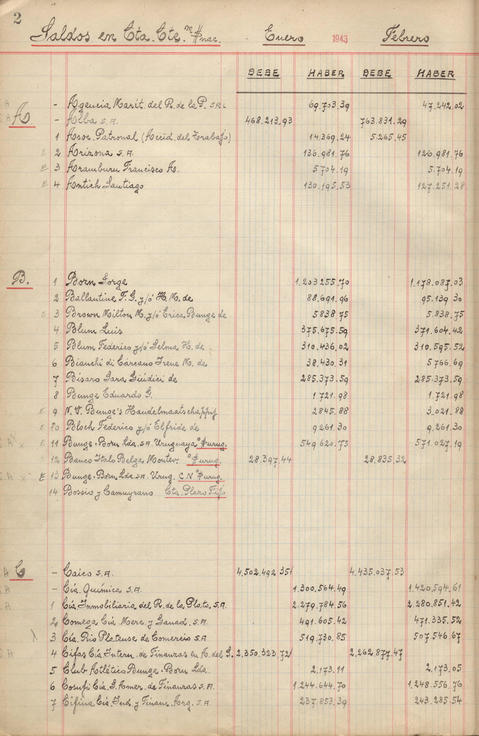 2
Saldos en Cta. Cte. m$nac. Enero 1943 Febrero
DEBE HABER DEBE HABER
A - Agencia Marít. del R. de la P. S.R.L. 69.703.39 47.242.02
- Alba S.A. 468.213.93 763.831.29
1 Asoc. Patronal (Accid. del Trabajo) 14.369.24 5.265.45
2 Arizona S.A. 136.981.76 126.981.76
3 Aramburu Francisco A. 5.704.19 5.704.19
4 Antich Santiago 130.195.53 127.251.28
B. 1 Born Jorge 1.203.255.70 1.178.087.03
2 Ballantine F. G. y/ó H. M. de 88.691.96 95.139.30
3 Brown Milton M. y/ó Erica Bunge de 5.838.75 5.838.75
4 Blum Luis 375.675.59 371.604.42
5 Blum Federico y/ó Selma H. de 310.436.02 310.595.52
6 Bianchi di Cárcano Irene M. de 38.430.31 5.766.69
7 Bisaro Sara Giúdici de 285.373.59 285.373.59
8 Bunge Eduardo G. 1.721.98 1.721.98
9 N.V. Bunge's Handelmaatschappij 2.845.88 3.021.88
10 Bloch Federico y/ó Elfride de 9.261.30 9.261.30
11 Bunge-Born Lda. S.A. Uruguaya $urug. 549.620.73 571.027.19
12 Banco Italo Belga Montev. $urug. 28.397.44 28.835.32
13 Bunge-Born Lda. S.A. Urug. C N $urug.
14 Bossio y Camuyrano Cta. Plazo Fijo
C - Caies S.A. 4.502.492.35 4.435.037.53
- Cía. Química S.A. 1.300.564.49 1.420.594.61
1 Cía Inmobiliaria del R. de la Plata, S.A. 2.279.784.56 2.280.851.42
2 Comega Cía Merc. y Ganad. S.A. 491.605.42 471.335.52
3 Cía Río Platense de Comercio S.A. 519.730.85 507.546.67
4 Cifas Cía Intern. de Finanzas en A. del S. 2.350.323.72 2.262.877.47
5 Club Atlético Bunge-Born Lda. 2.173.11 2.173.05
6 Comfi Cía. S. Amer. de Finanzas S.A. 1.244.644.70 1.248.556.76
7 Cifina Cía. Ind. y Financ. Arg. S.A. 237.853.39 243.285.54